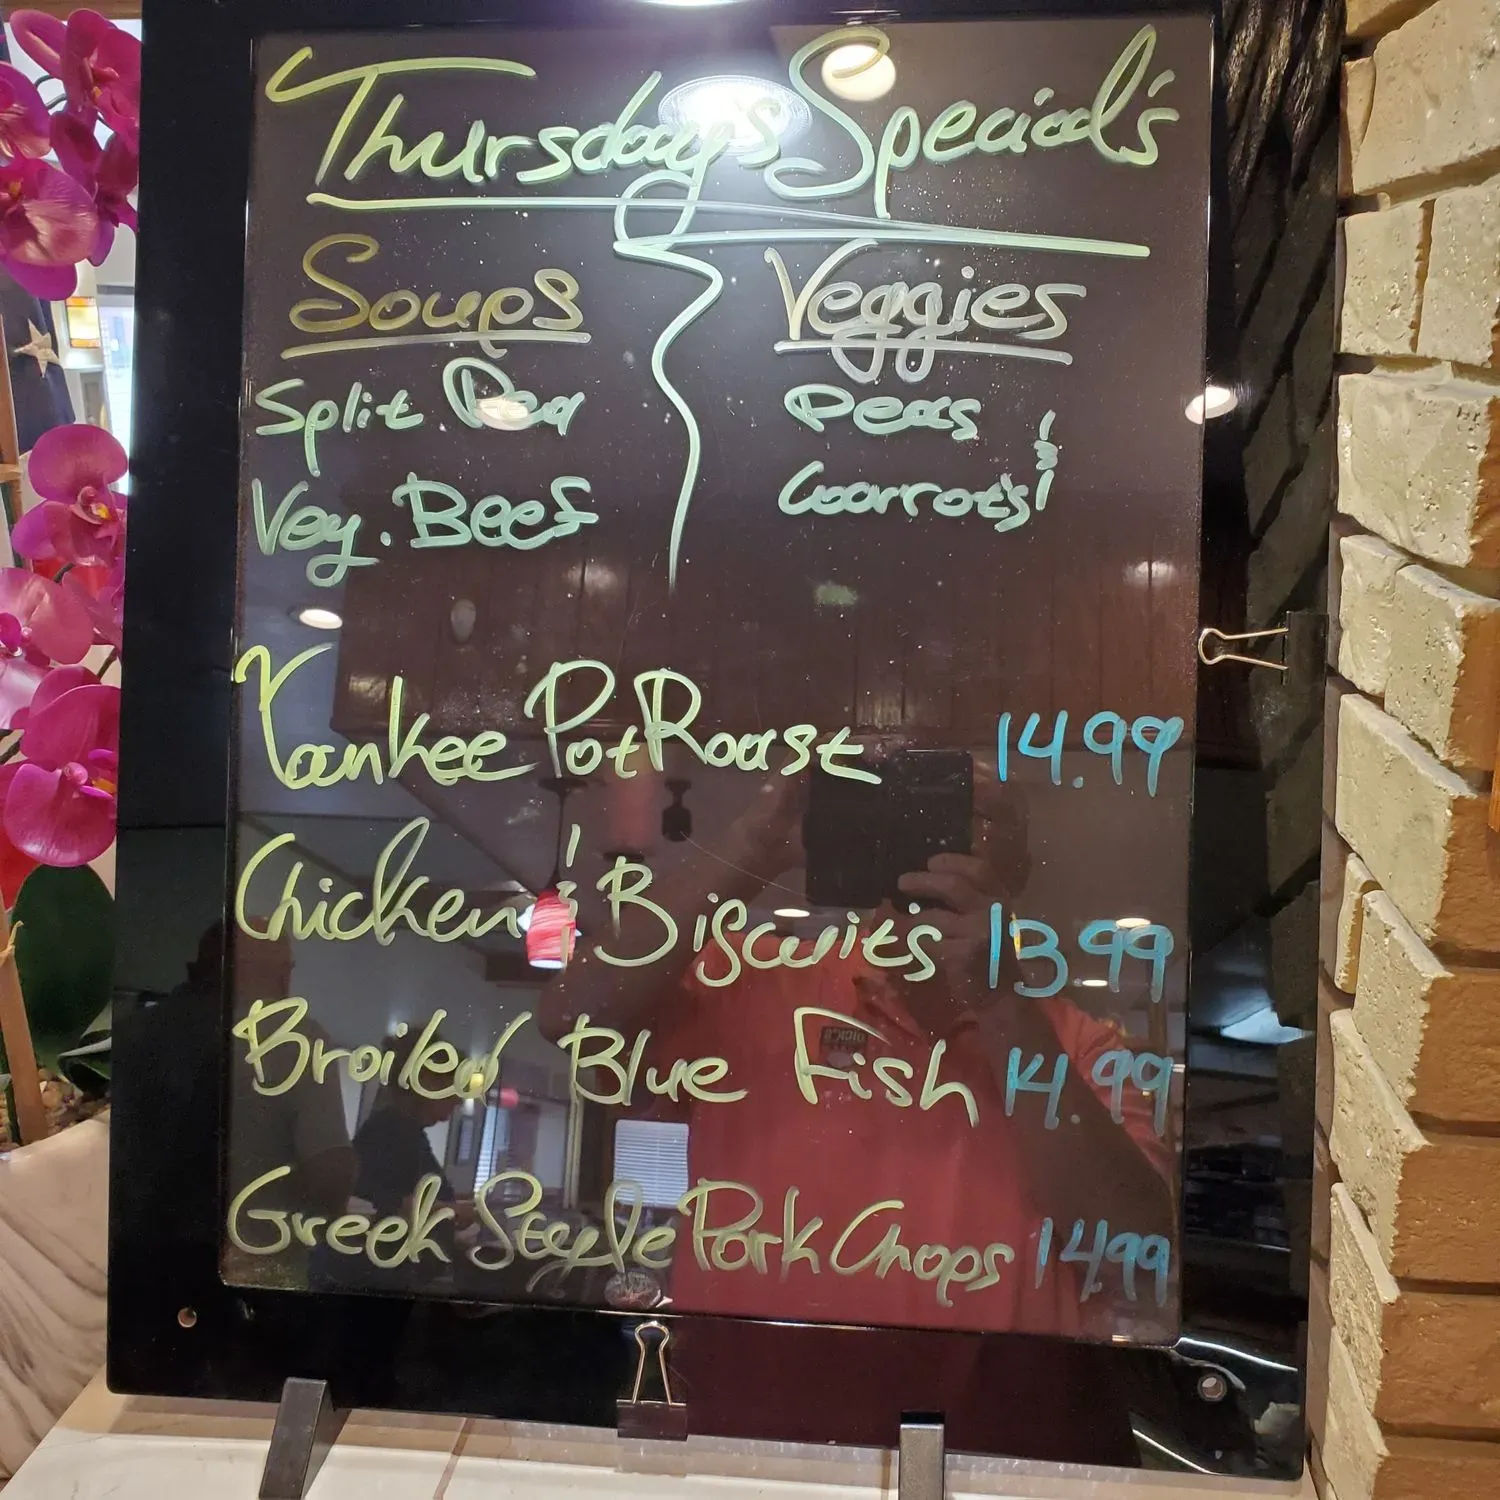 Thursday's Special's
Soups
Split Pea
Veg. Beef
Veggies
Peas &
Carrots
Yankee Pot Roast 14.99
Chicken & Biscuits 13.99
Broiled Blue Fish 14.99
Greek Style Pork Chops 14.99